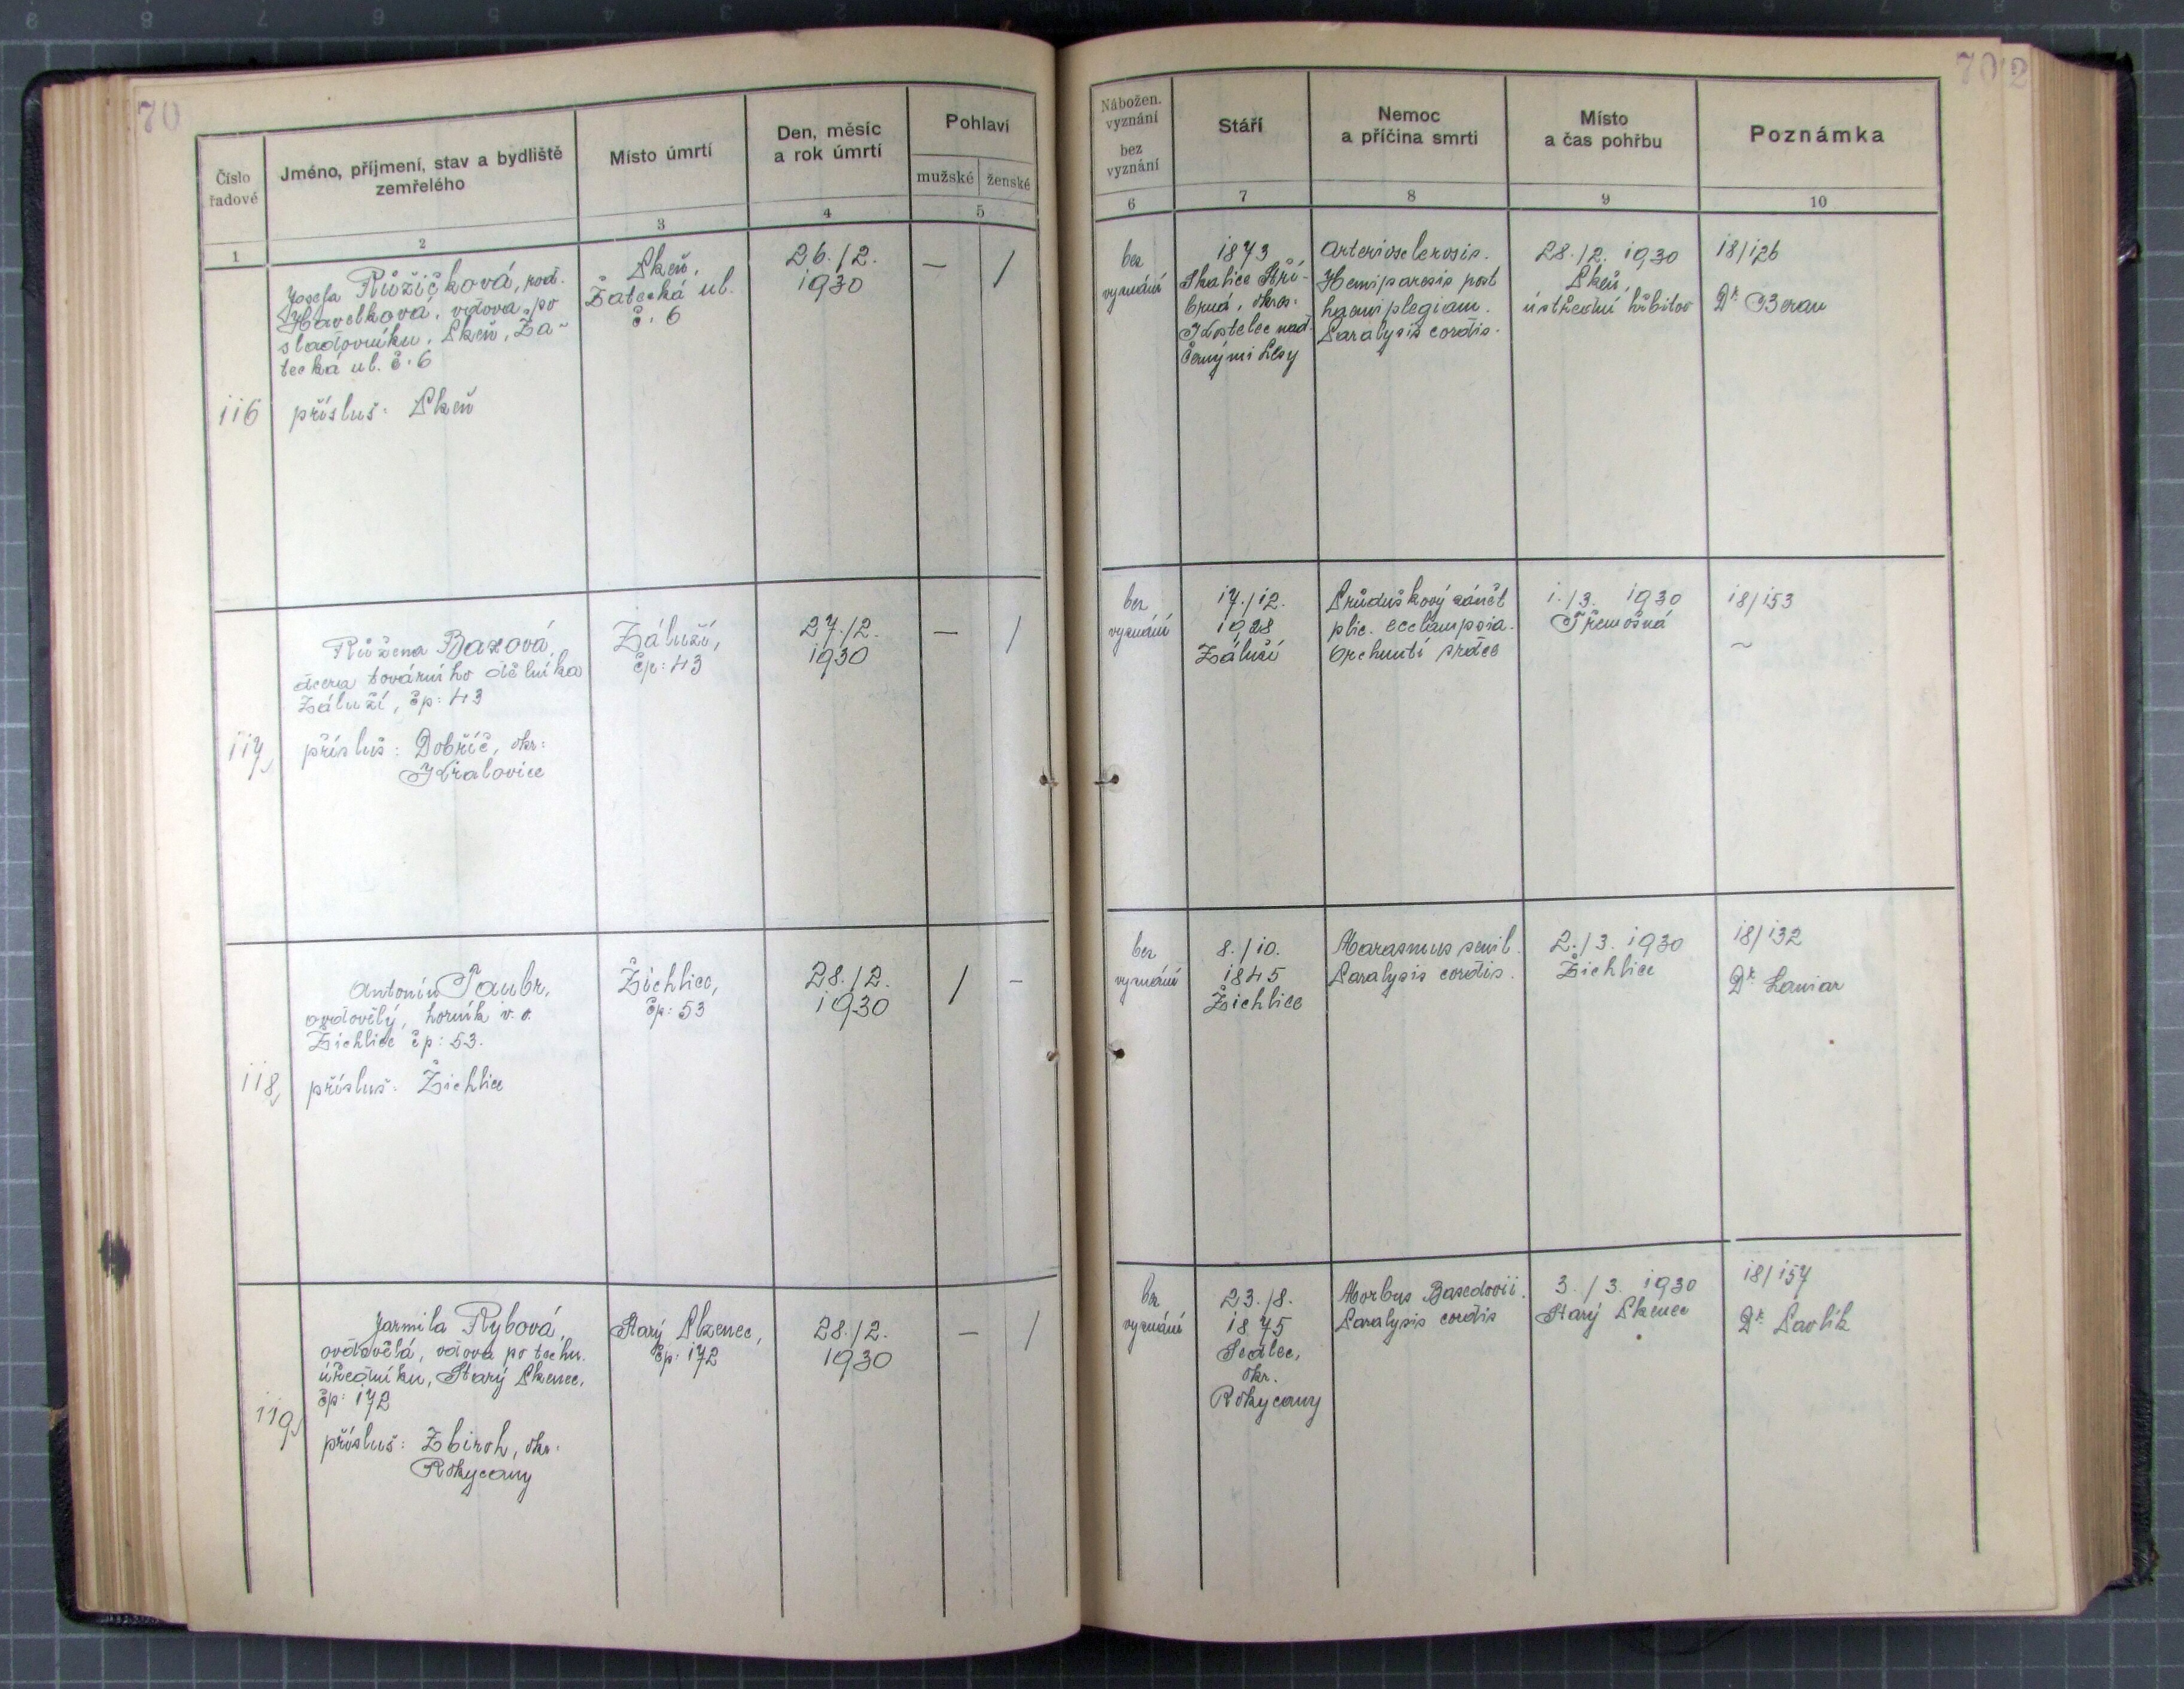 70
70/2
Číslo
řadové
Jméno, příjmení, stav a bydliště
zemřelého
Místo úmrtí
Den, měsíc
a rok úmrtí
Pohlaví
mužské
ženské
Nábožen.
vyznání
bez
vyznání
Stáří
Nemoc
a příčina smrti
Místo
a čas pohřbu
Poznámka
1
2
3
4
5
6
7
8
9
10
116
Josefa Růžičková, roz.
Havelková, vdova po
sladovníku, Plzeň, Ža-
tecká ul. č. 6
přísluš: Plzeň
Plzeň,
Žatecká ul.
č. 6
26./2.
1930
—
/
bez
vyznání
1873
Skalice Stří-
brná, okres:
Kostelec nad
Černými Lesy
Arteriosclerosis.
Hemiparesis post
haemiplegiam.
Paralysis cordis.
28./2. 1930
Plzeň,
ústřední hřbitov
18/126
Dr. Beran
117
Růžena Baxová,
dcera továrního dělníka
Záluží, čp: 43
přísluš: Dobříč, okr:
Kralovice
Záluží,
čp: 43
27./2.
1930
—
/
bez
vyznání
17./12.
1928
Záluží
Průduškový zánět
plic. ecclampsia.
Ochrnutí srdce
1./3. 1930
Třemošná
18/153
~
118
Antonín Taubr,
ovdovělý, horník v. v.
Žichlice čp: 53.
přísluš: Žichlice
Žichlice,
čp: 53
28./2.
1930
/
-
bez
vyznání
8./10.
1845
Žichlice
Marasmus senil.
Paralysis cordis.
2./3. 1930
Žichlice
18/132
Dr. Laniar
119
Jarmila Rybová,
ovdovělá, vdova po techn.
úředníku, Starý Plzenec,
čp: 172
přísluš: Zbiroh, okr:
Rokycany
Starý Plzenec,
čp: 172
28./2.
1930
—
/
bez
vyznání
23./8.
1875
Sedlec,
okr.
Rokycany
Morbus Basedovii.
Paralysis cordis
3./3. 1930
Starý Plzenec
18/157
Dr. Pavlík